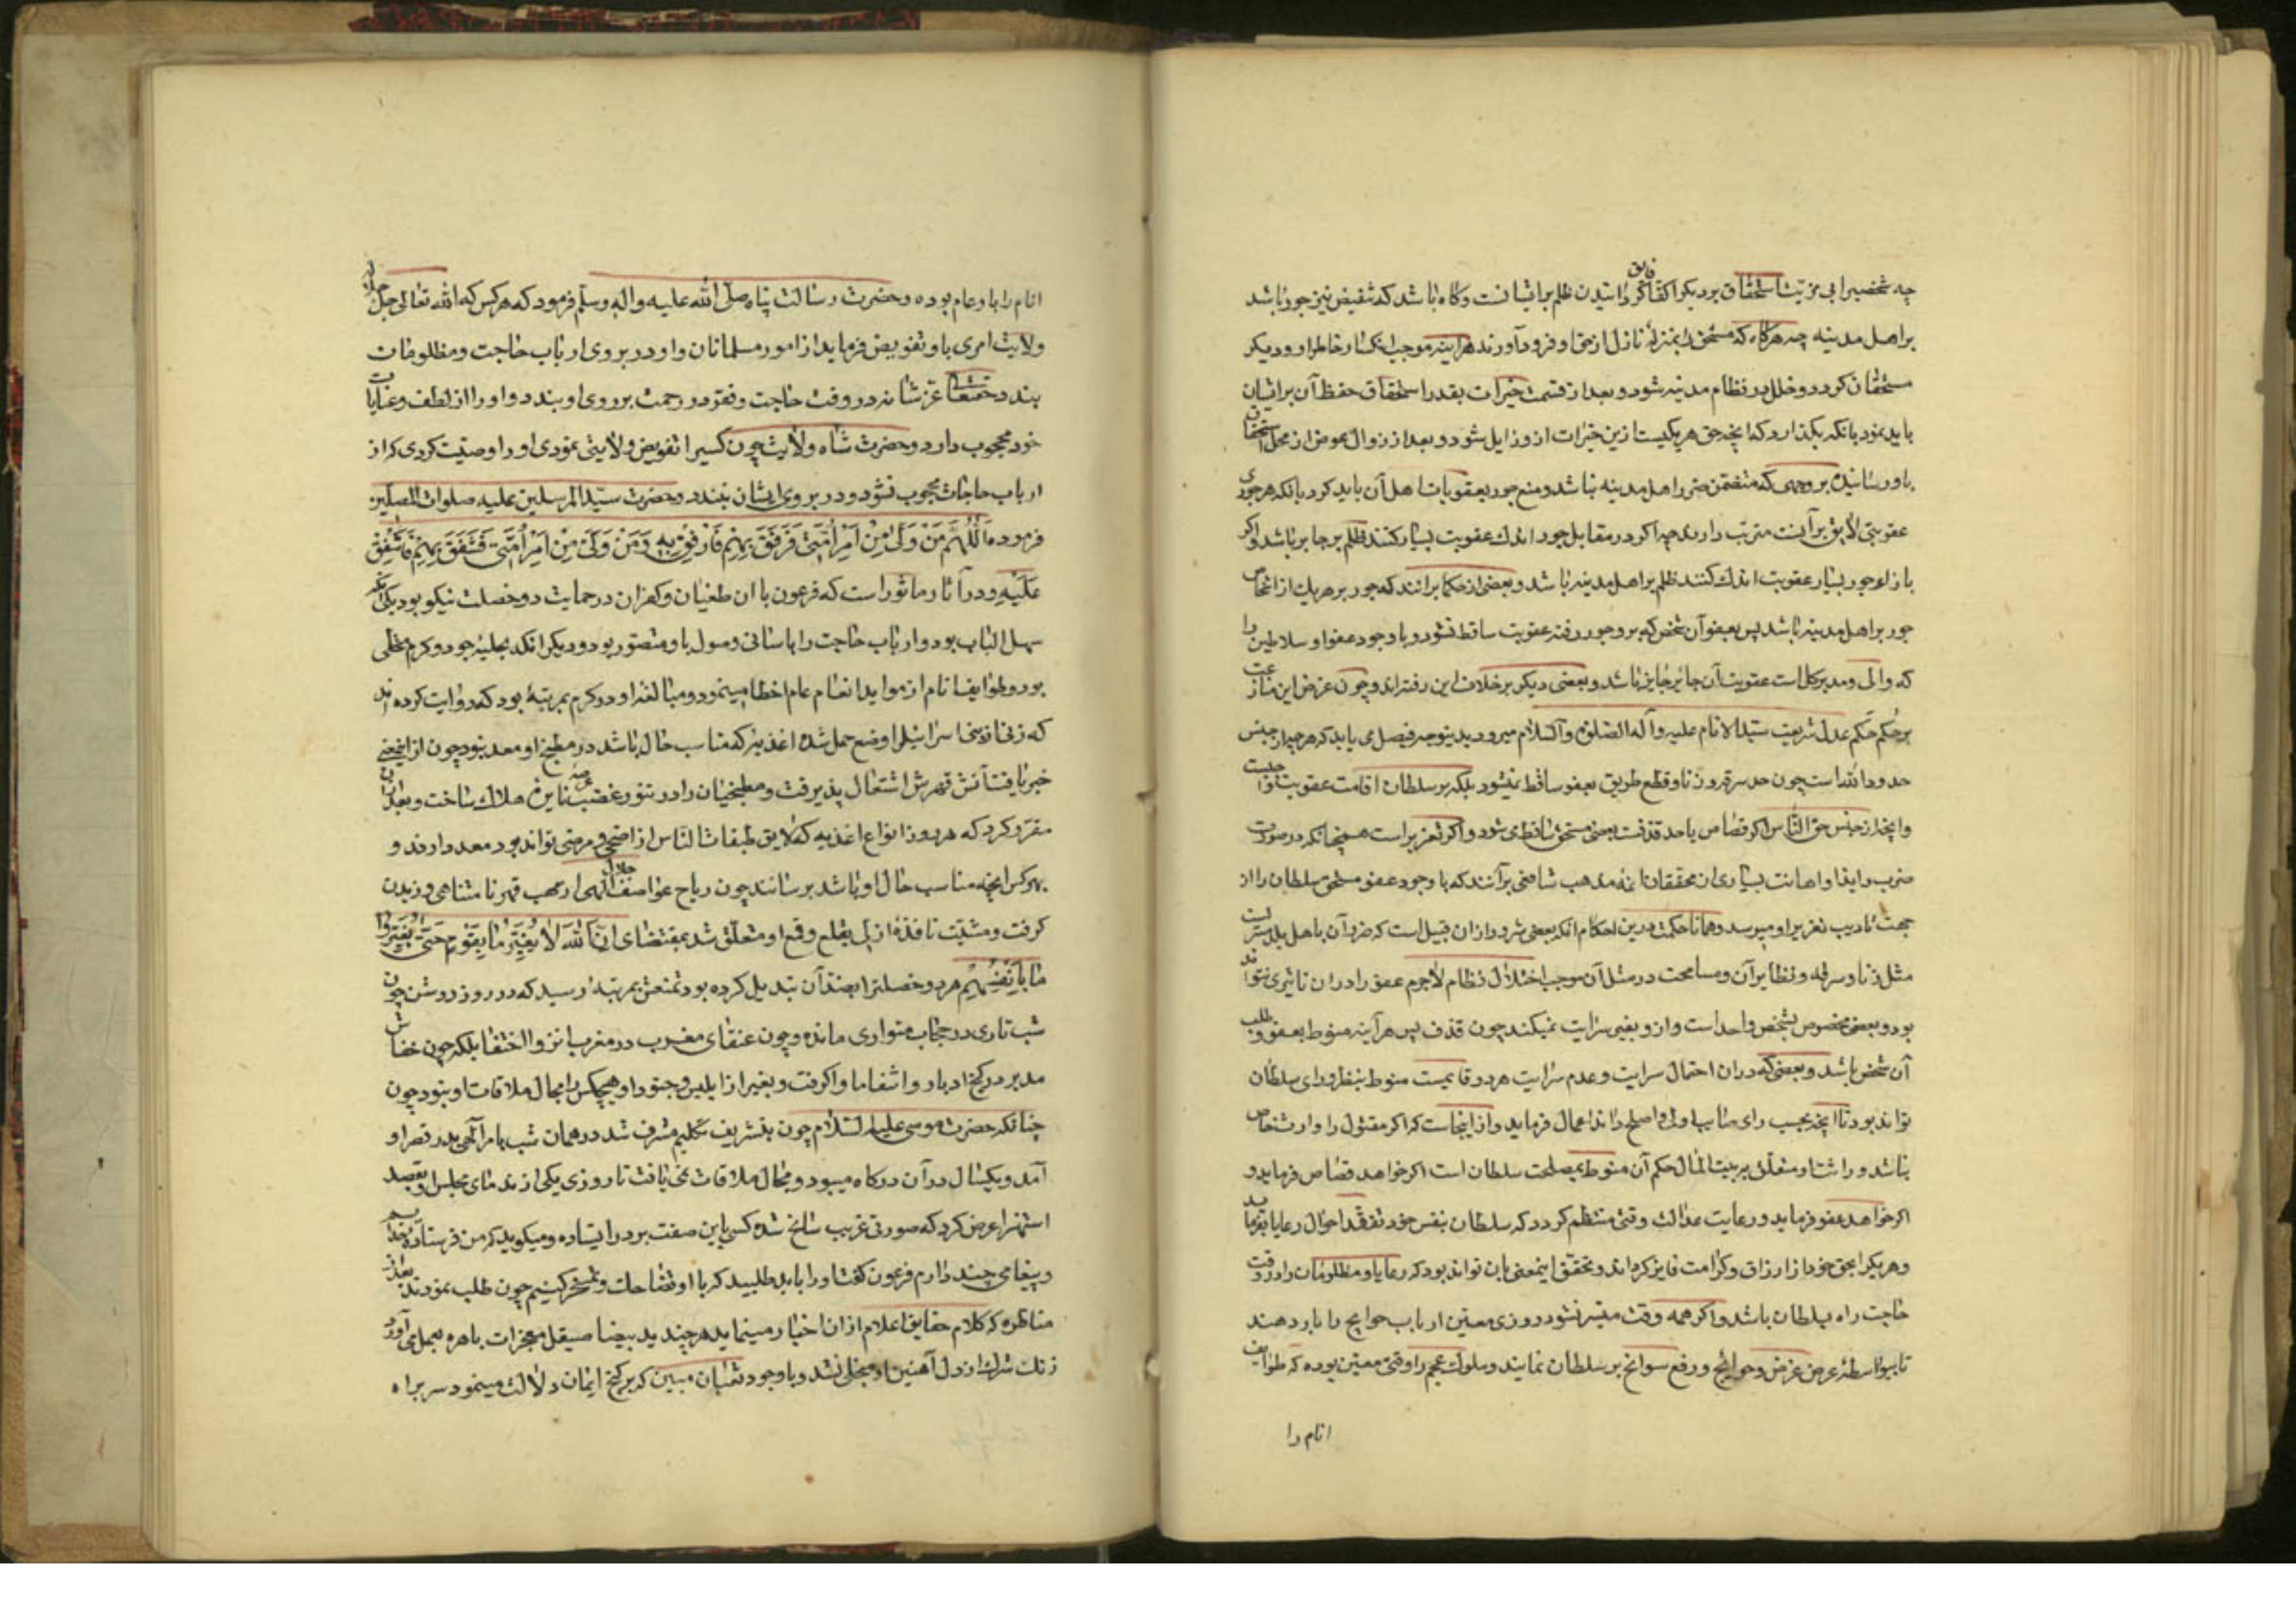 چه شخصیرا بی مزیت استحقاق بر دیگر اکفا فایق گردانیدن ظلم بر ایشانست و گاه باشد که تنقیص نیز جور باشد
بر اهل مدینه چه هرگاه که مستحق را بمنزله نازل از حق او فرود آورند هر آینه موجب انکسار خاطر او و دیگر
مستحقان گردد و خلل در نظام مدینه شود و بعد از قسمت خیرات بقدر استحقاق حفظ آن بر ایشان
باید نمود بانکه نگذارد که انچه حق هر یکیست ازین خیرات ازو زایل شود و بعد از زوال عوض از محل استحقاق
باو رسانیدن بر وجهی که متضمن ضرر اهل مدینه نباشد و منع جور بعقوبات اهل آن باید کرد بانکه هر جوری
عقوبتی لایق بر آن مترتب دارند چه اگر در مقابل جور اندک عقوبت بسیار کنند ظلم بر جایر باشد و اگر
بازاء جور بسیار عقوبت اندک کنند ظلم بر اهل مدینه باشد و بعضی از حکما برانند که جور بر هر یک از اشخاص
جور بر اهل مدینه باشد پس بعفو آن شخص که برو جور رفته عقوبت ساقط نشود و با وجود عفو او سلاطین را
که والی و مدبر کل است عقوبت آن جائر جایز باشد و بعضی دیگر بر خلاف این رفته‌اند و چون عرض این منازعت
بر حُکم حَکم عدل شریعت سید الانام علیه و آله الصلوة والسلام میرود بدینوجه فیصل می یابد که هر چه از جنس
حدود الله است چون حد سرقه و زنا و قطع طریق بعفو ساقط نمیشود بلکه بر سلطان اقامت عقوبت واجبست
و انچه از جنس حق الناس اگر قصاص یا حد قذفست بعفو مستحق ساقط می شود و اگر تعزیر است همچنانکه در صورت
ضرب و ایذا و اهانت بسیاری از محققان ائمه مذهب شافعی برآنند که با وجود عفو مستحق سلطان را از
جهت تادیب تعزیر او میرسد و همانا حکمت درین احکام انکه بعضی شرور ازان قبیل است که ضرر آن باهل بلد
مثل زنا و سرقه و نظایر آن و مسامحت در مثل آن موجب اختلال نظام لاجرم عفو را دران تاثیری نتواند
بود و بعضی مخصوص بشخص واحد است و ازو بغیر سرایت نمیکند چون قذف پس هر آینه منوط بعفو و طلب
آن شخص باشد و بعضی که دران احتمال سرایت و عدم سرایت هر دو قایمست منوط بنظر و رای سلطان
تواند بود تا انچه بحسب رای صایب اولی و اصلح داند اعمال فرماید و از اینجاست که اگر مقتول را وارث خاص
نباشد و وراثت او متعلق به بیت المال حکم آن منوط بمصلحت سلطان است اگر خواهد قصاص فرماید و
اگر خواهد عفو فرماید و رعایت عدالت وقتی منتظم گردد که سلطان بنفس خود تفقد احوال رعایا بفرماید
و هر یک را بحق خود از ارزاق و کرامت فایز گرداند و تحقق اینمعنی بان تواند بود که رعایا و مظلومان را در وقت
حاجت راه بسلطان باشد و اگر همه وقت میسر نشود روزی معین ارباب حوایج را بار دهند
تا بیواسطهٔ عرض غرض و حوایج و رفع سوانح بر سلطان نمایند و ملوک عجم را وقتی معین بوده که طوایف
انام را
انام را باو عام بوده و حضرت رسالت پناه صلی الله علیه واله وسلم فرمود که هر کس که الله تعالی جل جلاله
ولایت امری باو تفویض فرماید از امور مسلمانان و او در بروی ارباب حاجت و مظلومان
بندد حقتعالی عز شانه در وقت حاجت و فقر در رحمت بر روی او بندد و او را از لطف و عنایات
خود محجوب دارد و حضرت شاه ولایت چون کسیرا تفویض ولایتی نمودی او را وصیت کردی که از
ارباب حاجات محجوب نشود و در بروی ایشان نبندد و حضرت سید المرسلین علیه صلوات المصلین
فرموده اَللّٰهُمَّ مَنْ وَلِیَ مِنْ اَمْرِ اُمَّتِی فَرَفَقَ بِهِمْ فَارْفُقْ بِهِ وَمَنْ وَلِیَ مِنْ اَمْرِ اُمَّتِی فَشَفَقَ بِهِمْ فَاشْفُقْ
عَلَیْهِ و در آثار ماثور است که فرعون با ان طغیان و کفران در حمایت دو خصلت نیکو بود یکی آنکه
سهل الباب بود و ارباب حاجت را باسانی وصول باو متصور بود و دیگر انکه بحلیه جود و کرم محلی
بود و طوایف انام از مواید انعام عام اخطا مینمود و مبالغه او در کرم بمرتبهٔ بود که روایت کرده اند
که زنی از بنی اسرائیل را وضع حمل شده اغذیه که مناسب حال باشد در مطبخ او معد نبود چون ازینمعنی
خبر یافت آتش قهرش اشتعال پذیرفت و مطبخیان را در تنور غضب هلاک ساخت و بعد ازان
مقرر کرد که هر روز انواع اغذیه که لایق طبقات الناس از اصحی و مرضی تواند بود معد دارند و
بهر کس انچه مناسب حال او باشد برسانند چون ریاح عواصف جلال الهی از مهب قهر نامتناهی وزیدن
گرفت و مشیت نافذه ازلی بقلع و قمع او متعلق شد بمقتضای اِنَّ اللهَ لَا یُغَیِّرُ مَا بِقَوْمٍ حَتّٰی یُغَیِّرُوا
مَا بِاَنْفُسِهِمْ هر دو خصلت را بضد آن تبدیل کرده بود تمنعش بمرتبهٔ رسید که در روز روشن چون
شب تاری در حجاب متواری مانده و چون عنقای مغرب در مغرب انزوا اختفا بلکه چون خفاش
مدبر در کنج ادبار و اشقا ماوا گرفت و بغیر از ابلیس و جنود او هیچکس را مجال ملاقات او نبود چون
چنانکه حضرت موسی علیه السلام چون بتشریف تکلیم مشرف شد در همان شب بامر الهی بدر قصر او
آمد و یکسال در آن درگاه میبود و مجال ملاقات نمی یافت تا روزی یکی از ندمای مجلس او بقصد
استهزا عرض کرد که صورتی غریب سانح شده کسی باین صفت بر در ایستاده و میگوید که من فرستاده خدایم
و پیغامی چند دارم فرعون گفت او را باید طلبید که با او تمسخر کنیم چون طلب نمودند بعد از
مناظره که کلام حقایق اعلام ازان اخبار مینماید هر چند ید بیضا صیقل معجزات باهره بعمل می آورد
زنگ شرک از دل آهنین او منجلی نشد و با وجود ثعبان مبین که بر گنج ایمان دلالت مینمود سر براه